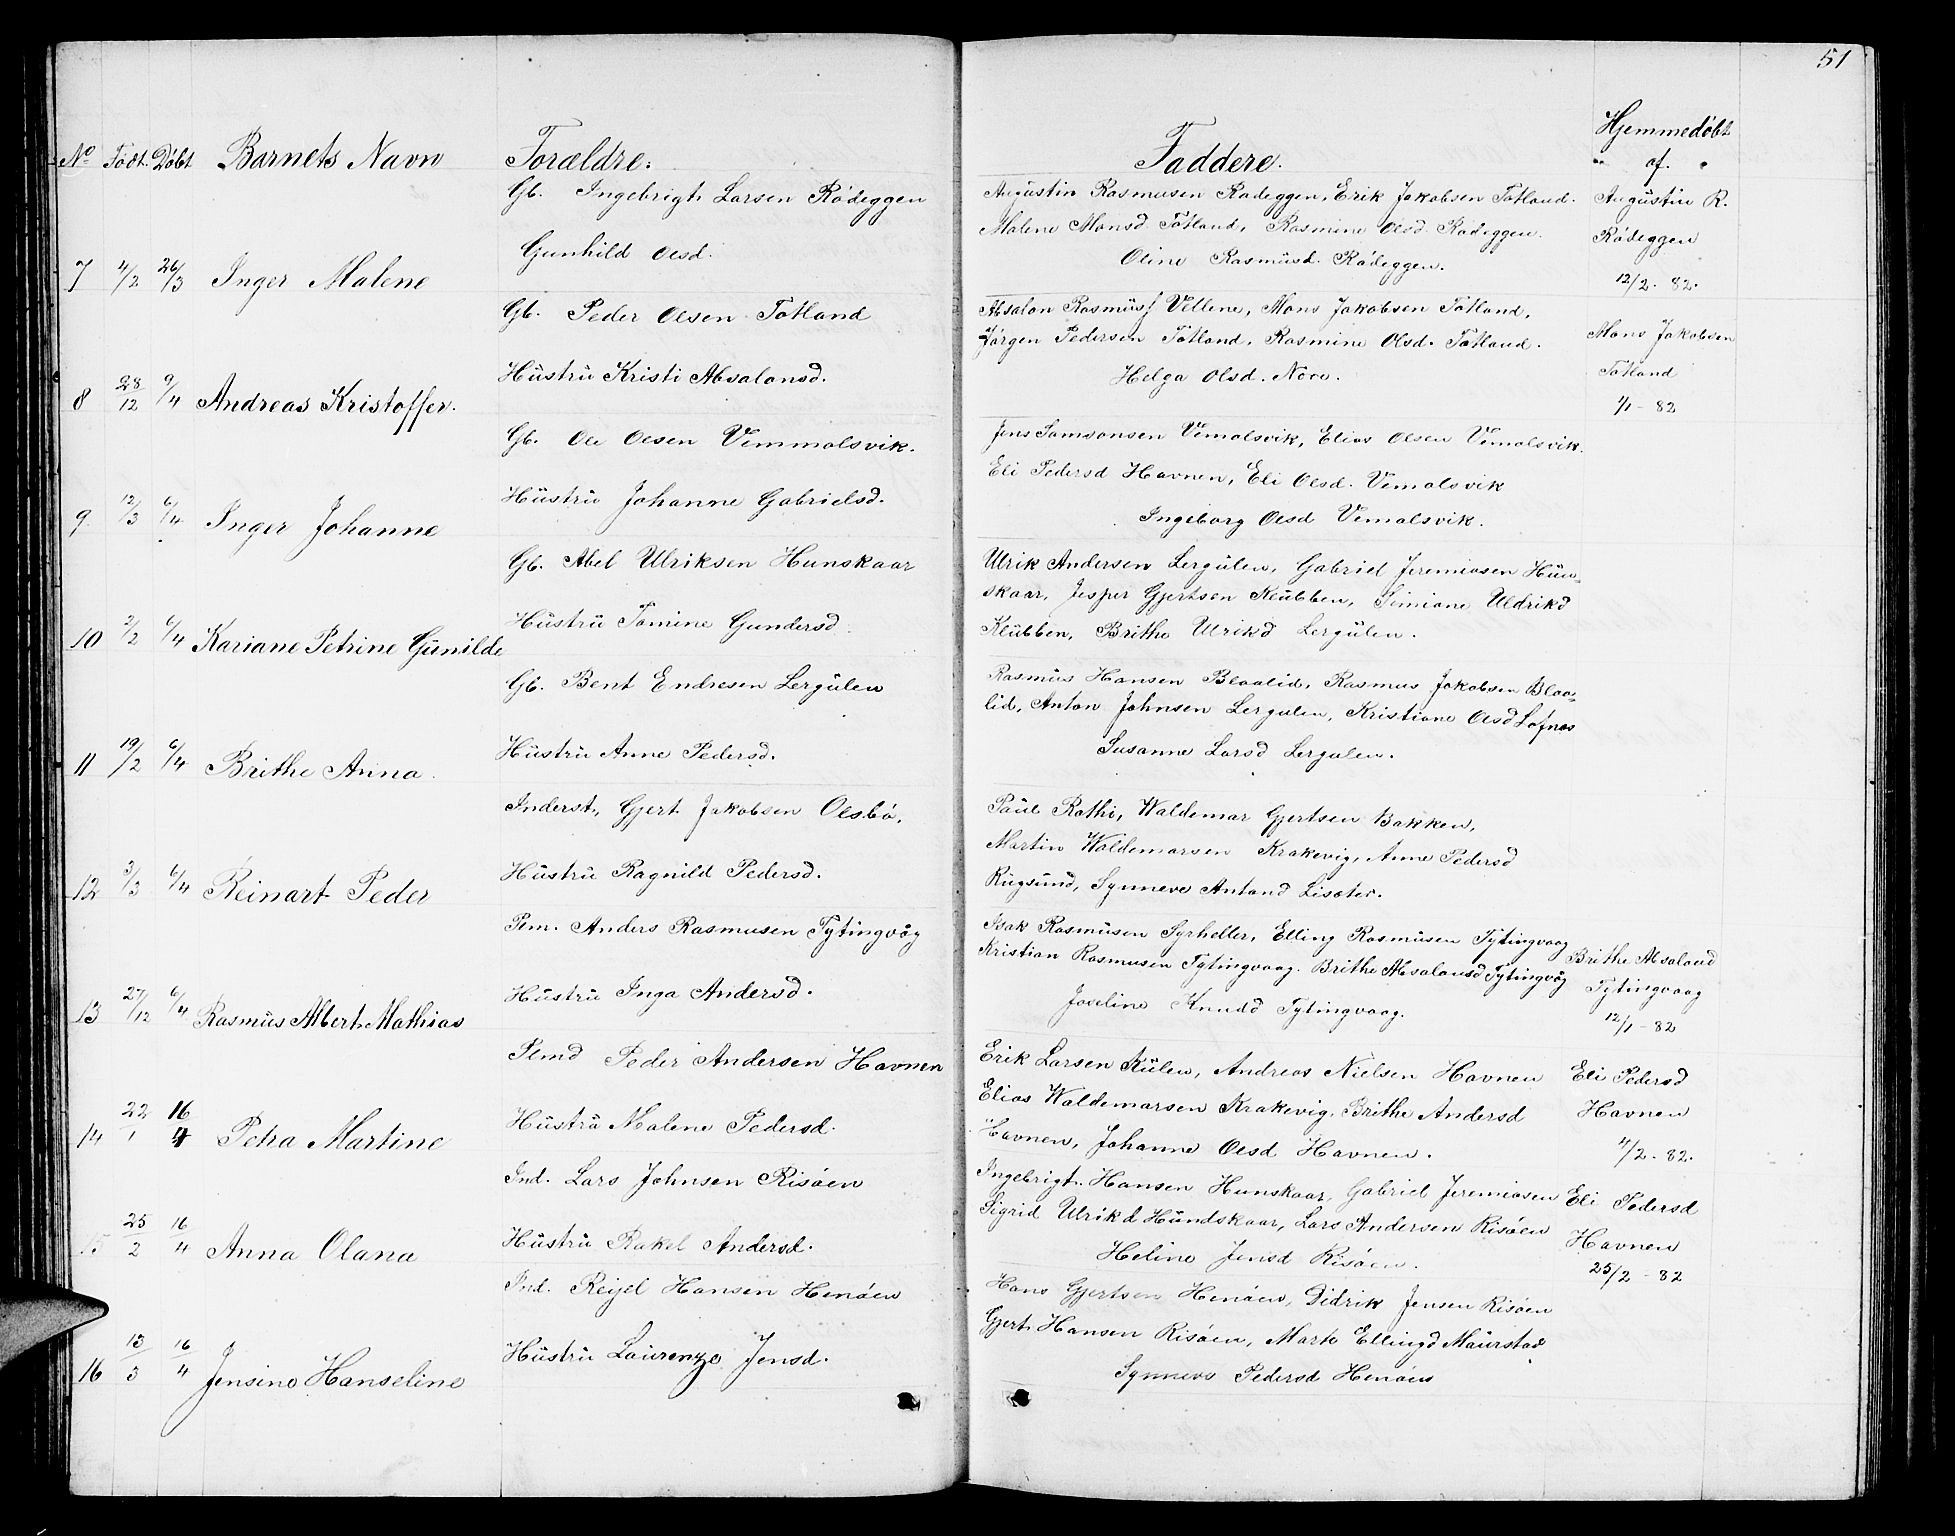 51
No Født. Døbt Barnets Navn Forældre: Faddere. Hjemmedøbt
" af. "
Gb. Ingebrigt Larsen Rödeggen
Gunhild Olsd.
7 4/2 26/3 Inger Malene
Augustin Rasmusen Rödeggen, Erik Jakobsen Totland.
Malene Monsd. Totland, Rasmine Olsd. Rödeggen.
Oline Rasmusd. Rödeggen.
Augustin R.
Rödeggen
12/2 - 82.
Gb. Peder Olsen Totland
Hustru Kristi Absalonsd.
8 28/12 9/4 Andreas Kristoffer.
Absalon Rasmusf Vellene, Mons Jakobsen Totland,
Jörgen Pedersen Totland, Rasmine Olsd. Totland.
Helga Olsd. Nore.
Mons Jakobsen
Totland
1/1 - 82
Gb. Ole Olsen Vemmalsvik.
Hustru Johanne Gabrielsd.
9. 12/3 6/4 Inger Johanne
Jens Samsonsen Vemalsvik, Elias Olsen Vemalsvik.
Eli Pedersd Havnen, Eli Olsd. Vemalsvik
Ingeborg Olsd Vemalsvik.
Gb. Abel Ulriksen Hunskaar
Hustru Tomine Gundersd.
10 2/2 6/4 Kariane Petrine Gunilde
Ulrik Andersen Lergulen, Gabriel Jeremiasen Hun-
skaar, Jesper Gjertsen Klubben, Simiane Uldrikd
Klubben, Brithe Ulrikd Lergulen.
Gb. Bent Endresen Lergulen
Hustru Anne Pedersd.
11 19/2 6/4 Brithe Anna.
Rasmus Hansen Blaalid, Rasmus Jakobsen Blaa-
lid, Anton Johnsen Lergulen, Kristiane Olsd Lofnes
Susanne Larsd Lergulen.
Inderst, Gjert Jakobsen Olsbö.
Hustru Ragnild Pedersd.
12 3/3 6/4 Reinart Peder
Paul Rathi, Waldemar Gjertsen Bakken,
Martin Waldemarsen Krakevig, Anne Pedersd
Rugsund, Synneve Antond Lisæter.
Plm. Anders Rasmusen Tytingvåg
Hustru Inga Andersd.
13 27/12 6/4 Rasmus Albert Mathias
Isak Rasmusen Syrheller, Elling Rasmusen Tytingvaag
Kristian Rasmusen Tytingvaag. Brithe Absalonsd Tytingvåg
Joseline Knudd Tytingvaag.
Brithe Absalond
Tytingvaag
12/1 - 82
Plmd Peder Andersen Havnen
Hustru Malene Pedersd.
14 22/1 16/4 Petra Martine
Erik Larsen Kulen, Andreas Nielsen Havnen
Elias Waldemarsen Krakevig, Brithe Andersd
Havnen, Johanne Olsd Havnen.
Eli Pedersd
Havnen
4/2 - 82.
Ind. Lars Johnsen Risöen
Hustru Rakel Andersd.
15 25/2 16/4 Anna Olana
Ingebrigt Hansen Hunskaar, Gabriel Jeremiasen
Sigrid Ulrikd Hundskaar, Lars Andersen Risöen
Heline Jensd Risöen.
Eli Pedersd
Havnen
25/2 - 82
Ind. Reijel Hansen Henöen
Hustru Laurenze Jensd.
16 13/3 16/4 Jensine Hanseline
Hans Gjertsen Henöen, Didrik Jensen Risöen
Gjert Hansen Risöen, Marte Ellingd Maurstad
Synneve Pedersd Henöen